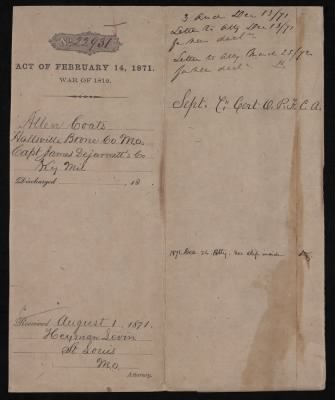 No. 22931
ACT OF FEBRUARY 14, 1871.
WAR OF 1812.
Allen Coats
Hallsville Boone Co Mo.
Capt James Dejarnett's Co
Ky Mil
Discharged , 18
Received August 1, 1871.
Heyman Levin
St Louis
Mo
Attorney.
3 And Dec 13/71
Letter to Atty Dec 13/71
for new decl
Letter to Atty March 25/72
for new decl
Sept. Cert. O. P. F. C. A.
1871 Dec 26 Atty. slip inside